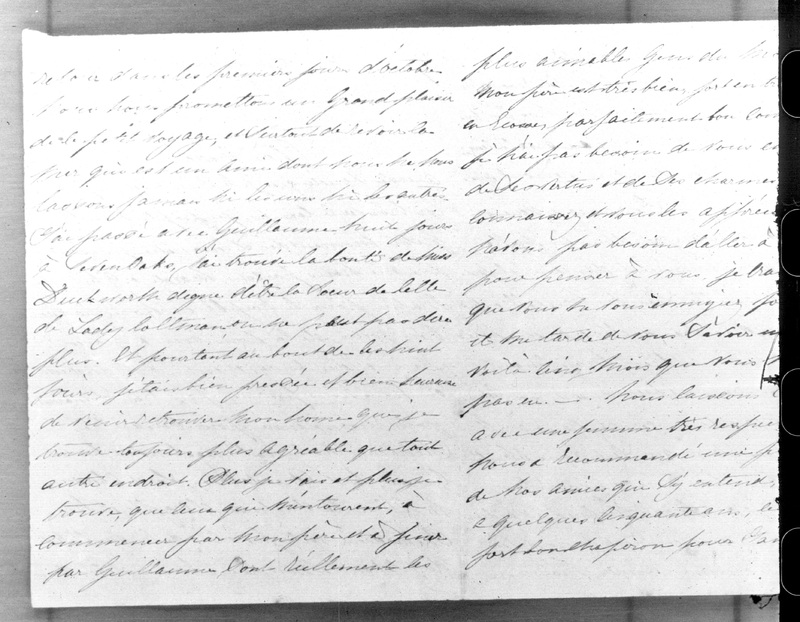 dans les premiers jours d'octobre
Nous nous promettons un Grand plaisir
de ce petit voyage, et surtout de revoir la
mer qui est un ami dont nous ne nous
lassons jamais ni les uns ni les autres
J'ai passé avec Guillaume huit jours
à Sevenoaks, j'ai trouvé la bonté de Miss
Duckworth digne d'être la soeur de celle
de Lady Coltman on ne peut pas dire
plus. Et pourtant au bout de ces huit
jours j'étais bien pressée et bien heureuse
de venir retrouver mon home que je
trouve toujours plus agréable que tout
autre endroit. Plus je vais et plus je
trouve, que ceux qui m'entourent, à
commencer par mon père et à finir
par Guillaume, sont réellement les
plus aimables Gens du
Mon père est très bien, fort en
en Ecosse, parfaitement bon
je n'ai pas besoin de vous
de ses vertus et de ses charmes
connaissez et vous les
n'avons pas besoin d'aller à
pour penser à vous, je
que vous ne vous ennuyiez
il me tarde de vous savoir
voilà cinq mois que vous
pas eu — Nous laissons
avec une femme très
nous a recommandé une
de nos amies qui s'y entend,
a quelques cinquante ans,
fort bon chaperon pour